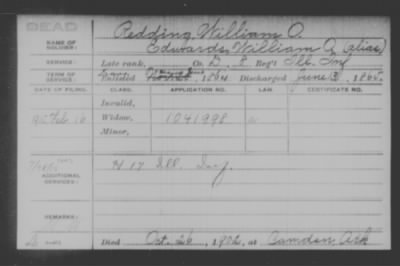 DEAD
Redding, William O.
NAME OF SOLDIER:
Edwards, William O. (alias)
SERVICE: Late rank, Co. D, 8 Reg't Ill. Inf
TERM OF SERVICE: Enlisted 1864 Discharged June 3, 1865
DATE OF FILING. CLASS. APPLICATION NO. LAW. CERTIFICATE NO.
Invalid,
Feb 16 Widow, 1041998
Minor,
ADDITIONAL SERVICES: H 17 Ill. Inf.
REMARKS:
Died Oct. 26, 1902, at Camden Ark